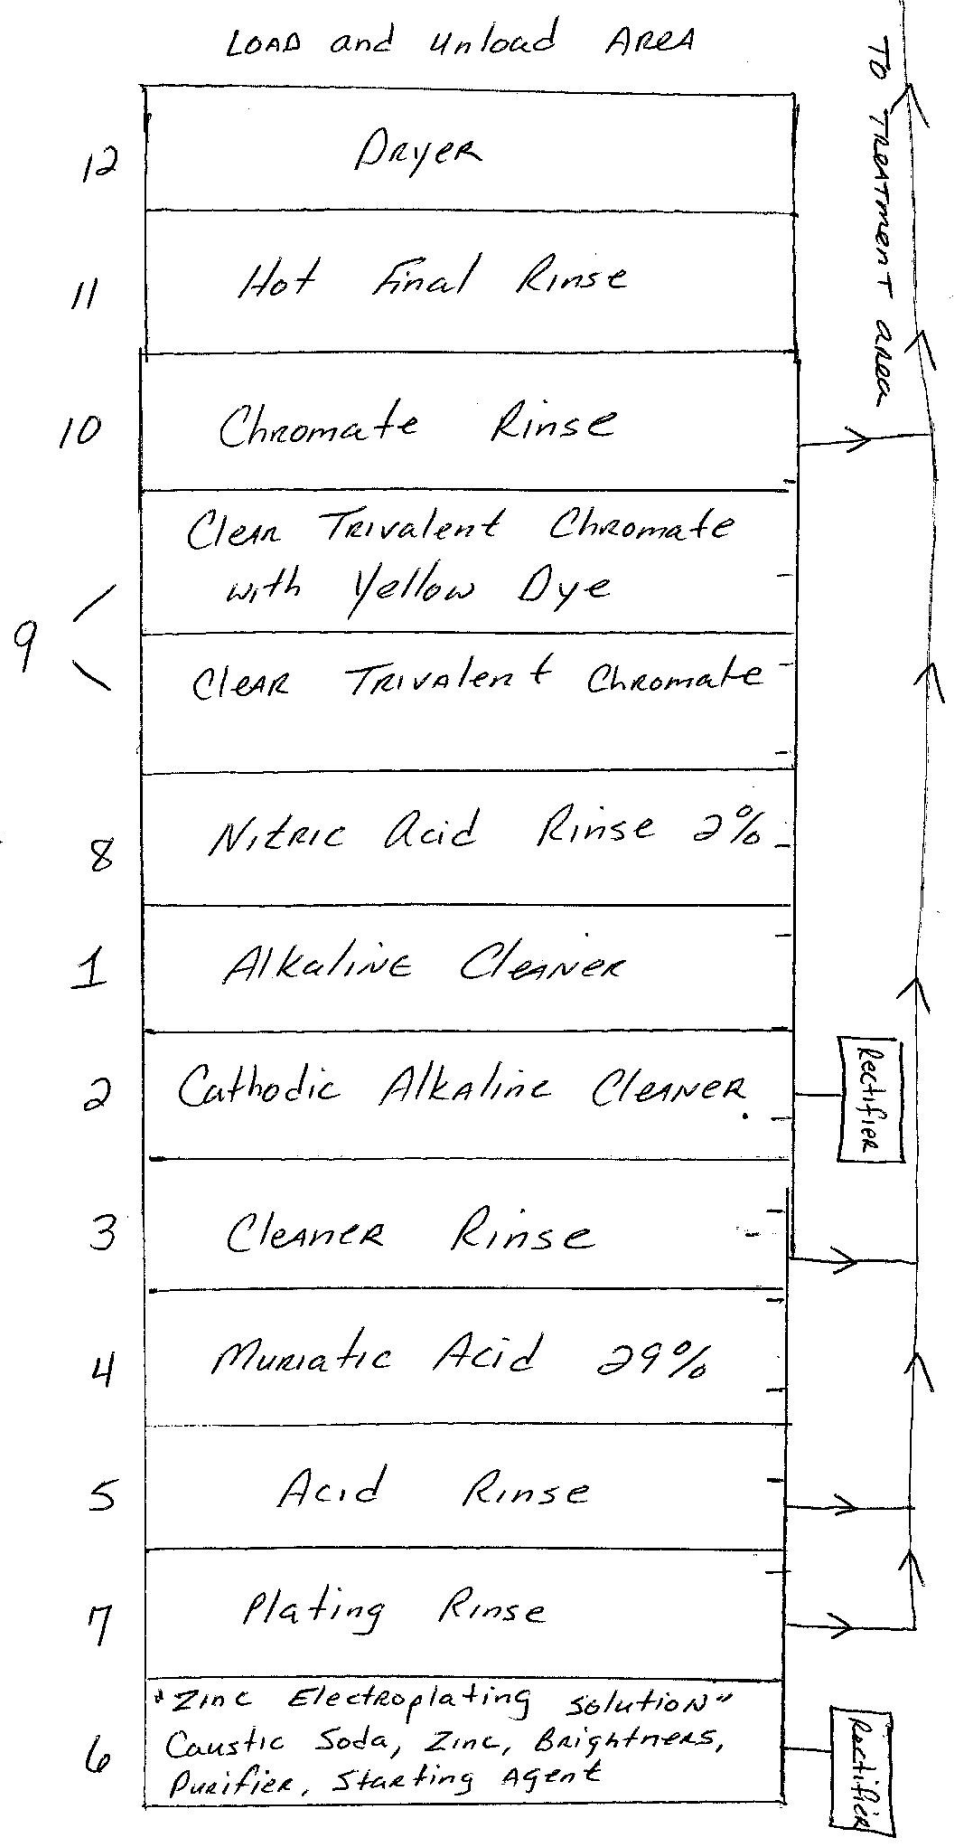 LOAD and Unload AREA
TO TREATMENT area
12 Dryer
11 Hot Final Rinse
10 Chromate Rinse
Clear Trivalent Chromate
with Yellow Dye
9
Clear Trivalent Chromate
8 Nitric Acid Rinse 2%
1 Alkaline Cleaner
2 Cathodic Alkaline Cleaner
Rectifier
3 Cleaner Rinse
4 Muriatic Acid 29%
5 Acid Rinse
7 Plating Rinse
"Zinc Electroplating Solution"
6 Caustic Soda, Zinc, Brightners,
Purifier, Starting Agent
Rectifier